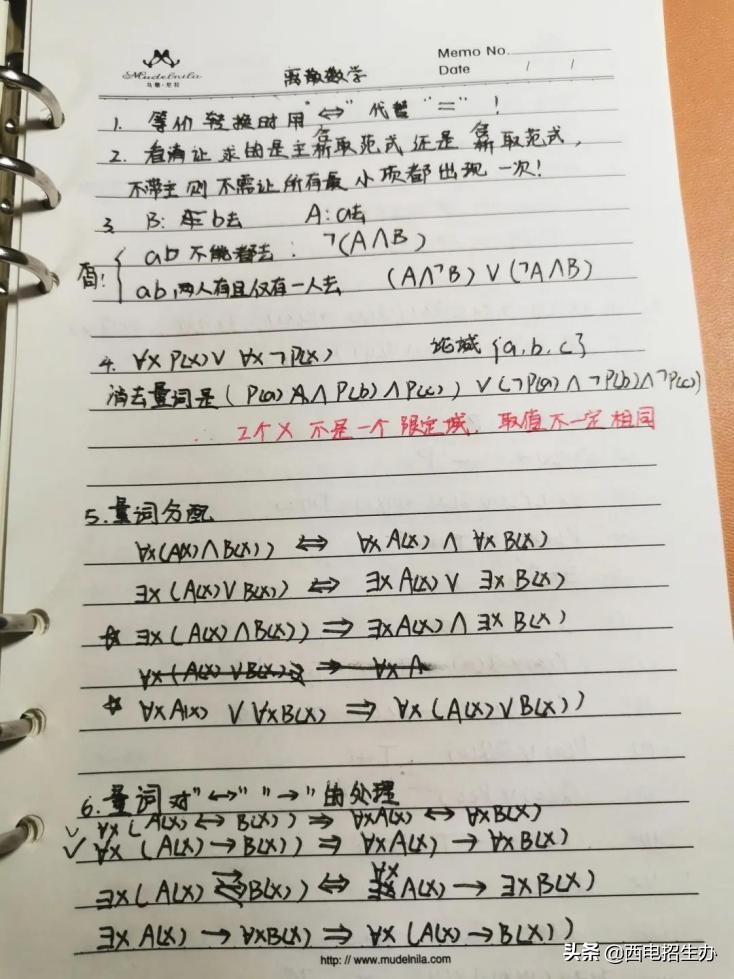 Mudelnila
马缰·尼拉
Memo No.
Date / /
离散数学
1. 等价转换时用"⇔"代替"="!
2. 看清让求的是主析取范式还是合取范式,
不带主则不需让所有最小项都出现一次!
3. B: b去 A: a去
ab不能都去: ¬(A∧B)
ab,两人有且仅有一人去 (A∧¬B)∨(¬A∧B)
4. ∀xP(x)∨∀x¬P(x) 论域{a,b,c}
消去量词是(P(a)∧P(b)∧P(c))∨(¬P(a)∧¬P(b)∧¬P(c))
∴ 2个x不是一个限定域,取值不一定相同
5.量词分配
∀x(A(x)∧B(x)) ⇔ ∀xA(x)∧∀xB(x)
∃x(A(x)∨B(x)) ⇔ ∃xA(x)∨∃xB(x)
☆ ∃x(A(x)∧B(x)) ⇒ ∃xA(x)∧∃xB(x)
∀x(A(x)∨B(x)) ⇒ ∀xA
☆ ∀xA(x)∨∀xB(x) ⇒ ∀x(A(x)∨B(x))
6.量词对"↔""→"的处理
✓ ∀x(A(x)↔B(x)) ⇒ ∀xA(x)↔∀xB(x)
✓ ∀x(A(x)→B(x)) ⇒ ∀xA(x)→∀xB(x)
∃x(A(x)→B(x)) ⇔ ∀xA(x)→∃xB(x)
∃xA(x)→∀xB(x) ⇒ ∀x(A(x)→B(x))
http://www.mudelnila.com
头条@西电招生办